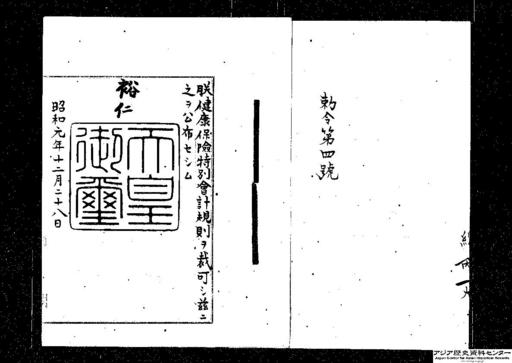 勅令第四號
朕健康保險特別會計規則ヲ裁可シ茲ニ
之ヲ公布セシム
裕仁
天皇
御璽
昭和元年十二月二十八日
アジア歴史資料センター
Japan Center for Asian Historical Records